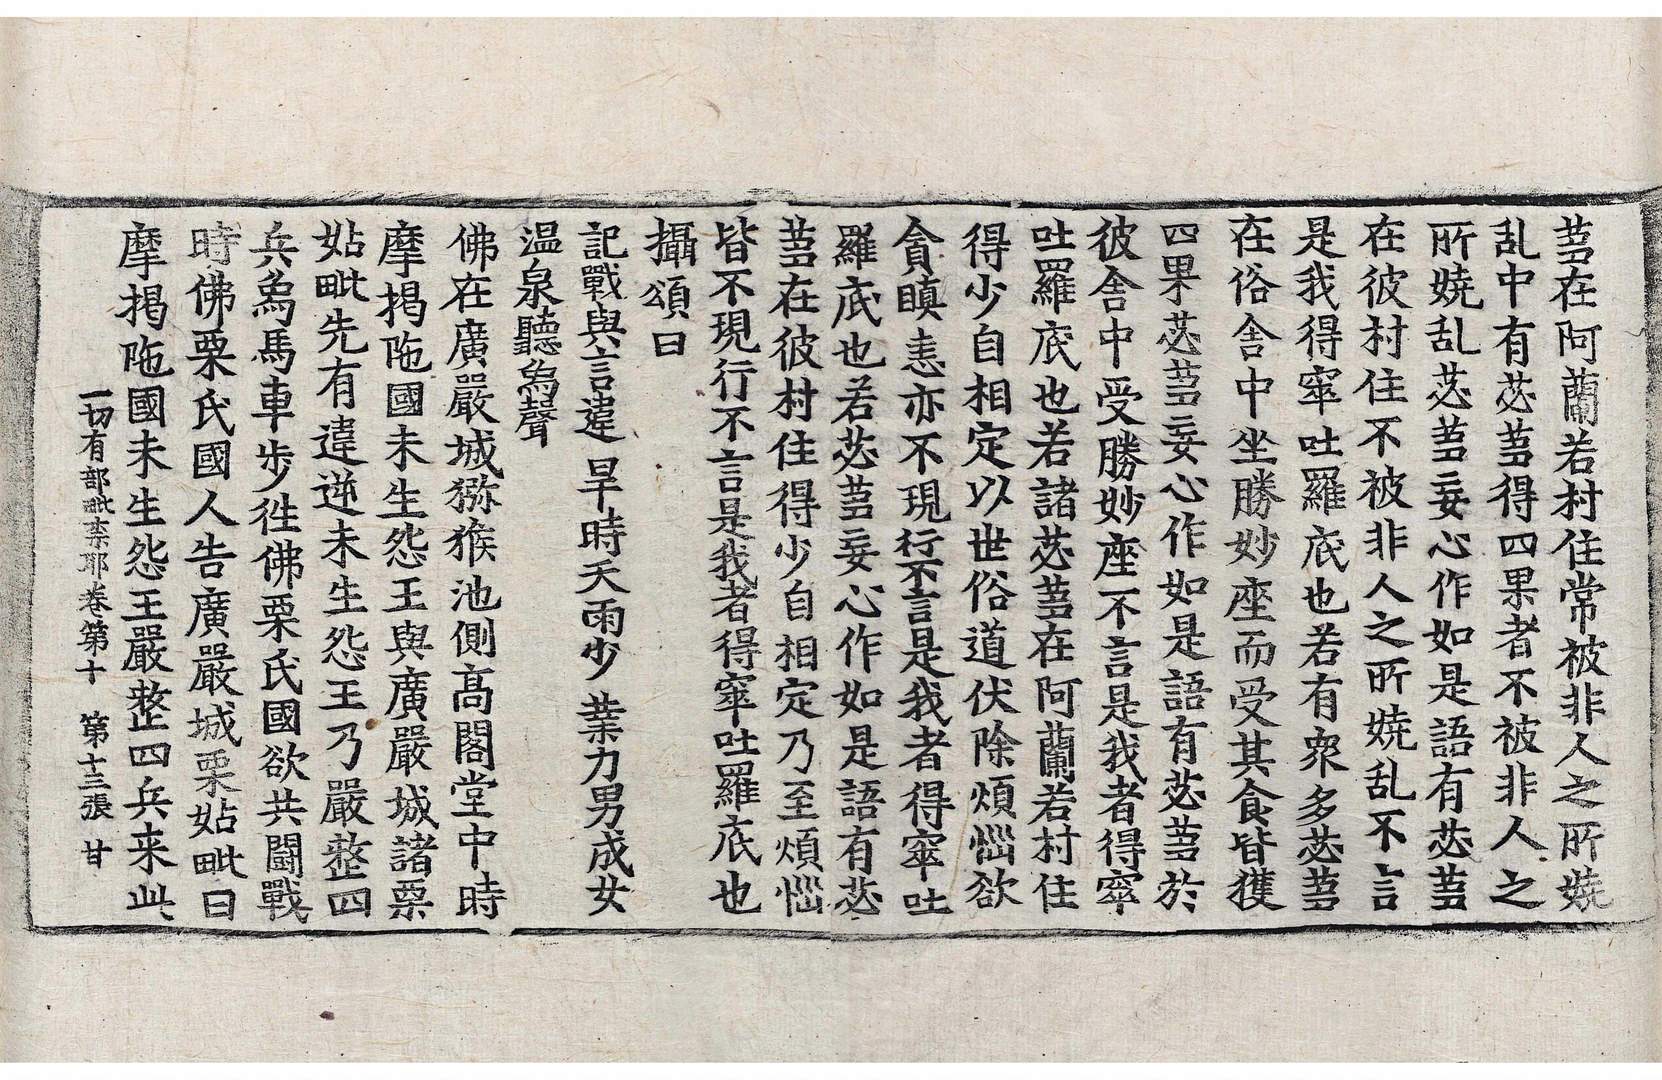 蒭在阿蘭若村住常被非人之所嬈
乱中有苾蒭得四果者不被非人之
所嬈乱苾蒭妄心作如是語有苾蒭
在彼村住不被非人之所嬈乱不言
是我得窣吐羅底也若有衆多苾蒭
在俗舍中坐勝妙座而受其食皆獲
四果苾蒭妄心作如是語有苾蒭於
彼舍中受勝妙座不言是我者得窣
吐羅底也若諸苾蒭在阿蘭若村住
得少自相定以世俗道伏除煩惱欲
貪瞋恚亦不現行不言是我者得窣吐
羅底也若苾蒭妄心作如是語有苾
蒭在彼村住得少自相定乃至煩惱
皆不現行不言是我者得窣吐羅底也
攝頌曰
記戰與言違 旱時天雨少 業力男成女
温泉聽象聲
佛在廣嚴城獼猴池側高閣堂中時
摩揭陁國未生怨王與廣嚴城諸栗
姑毗先有違逆未生怨王乃嚴整四
兵象馬車步徃佛栗氏國欲共鬪戰
時佛栗氏國人告廣嚴城栗姑毗曰
摩揭陁國未生怨王嚴整四兵来此
一切有部毗柰耶卷第十 第十三張 甘